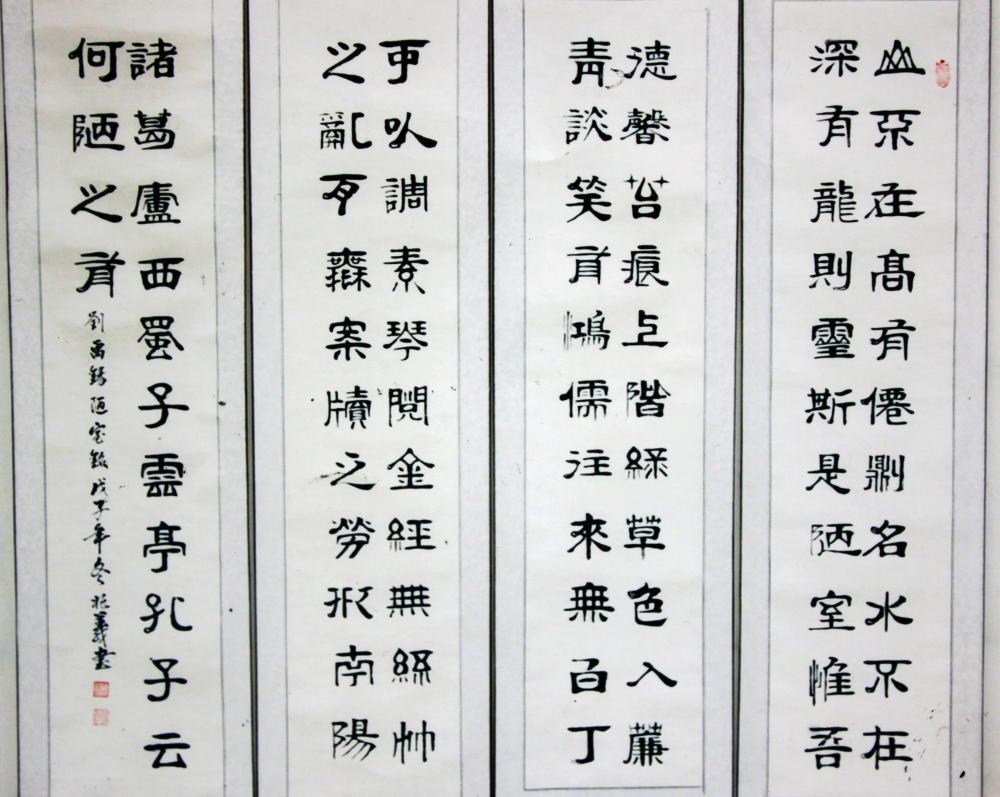 山不在高有僊則名水不在
深有龍則靈斯是陋室惟吾
德馨苔痕上階綠草色入簾
青談笑有鴻儒往來無白丁
可以調素琴閱金經無絲竹
之亂耳無案牘之勞形南陽
諸葛廬西蜀子雲亭孔子云
何陋之有
劉禹錫陋室銘戊子年冬義書